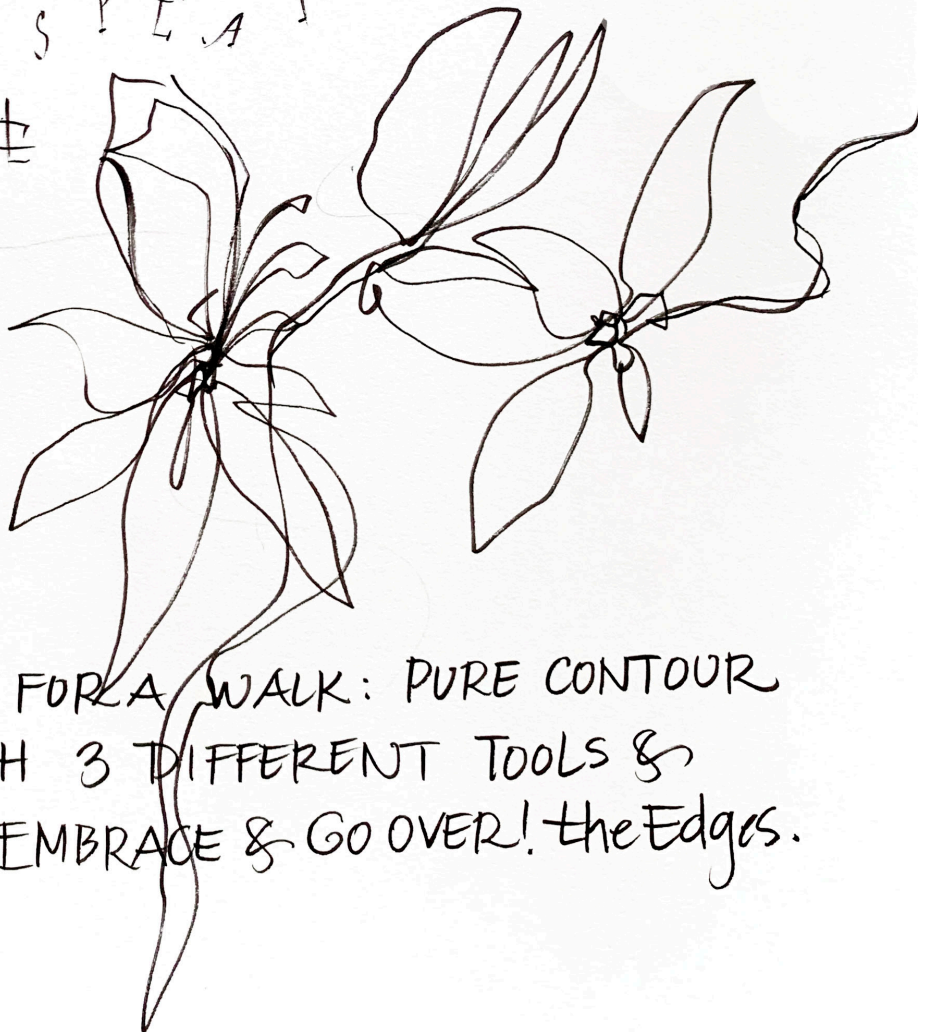 FOR A WALK: PURE CONTOUR
H 3 DIFFERENT TOOLS &
EMBRACE & GO OVER! the Edges.